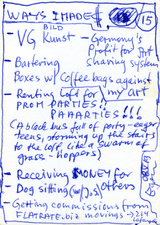 WAYS I MADE $
15
BILD
- VG Kunst - Germany's
Profit for Art
sharing system
- Bartering
Boxes w/ Coffee bags against
my art
- Renting Loft for
PROM PARTIES!!
PAAARTIES!!!
(A black bus full of party-eager
teens, storming up the stairs
to the loft like a swarm of
grass-hoppers)
- Receiving MONEY for
Dog sitting others
- Getting commissions from
FLATRATE.biz movings